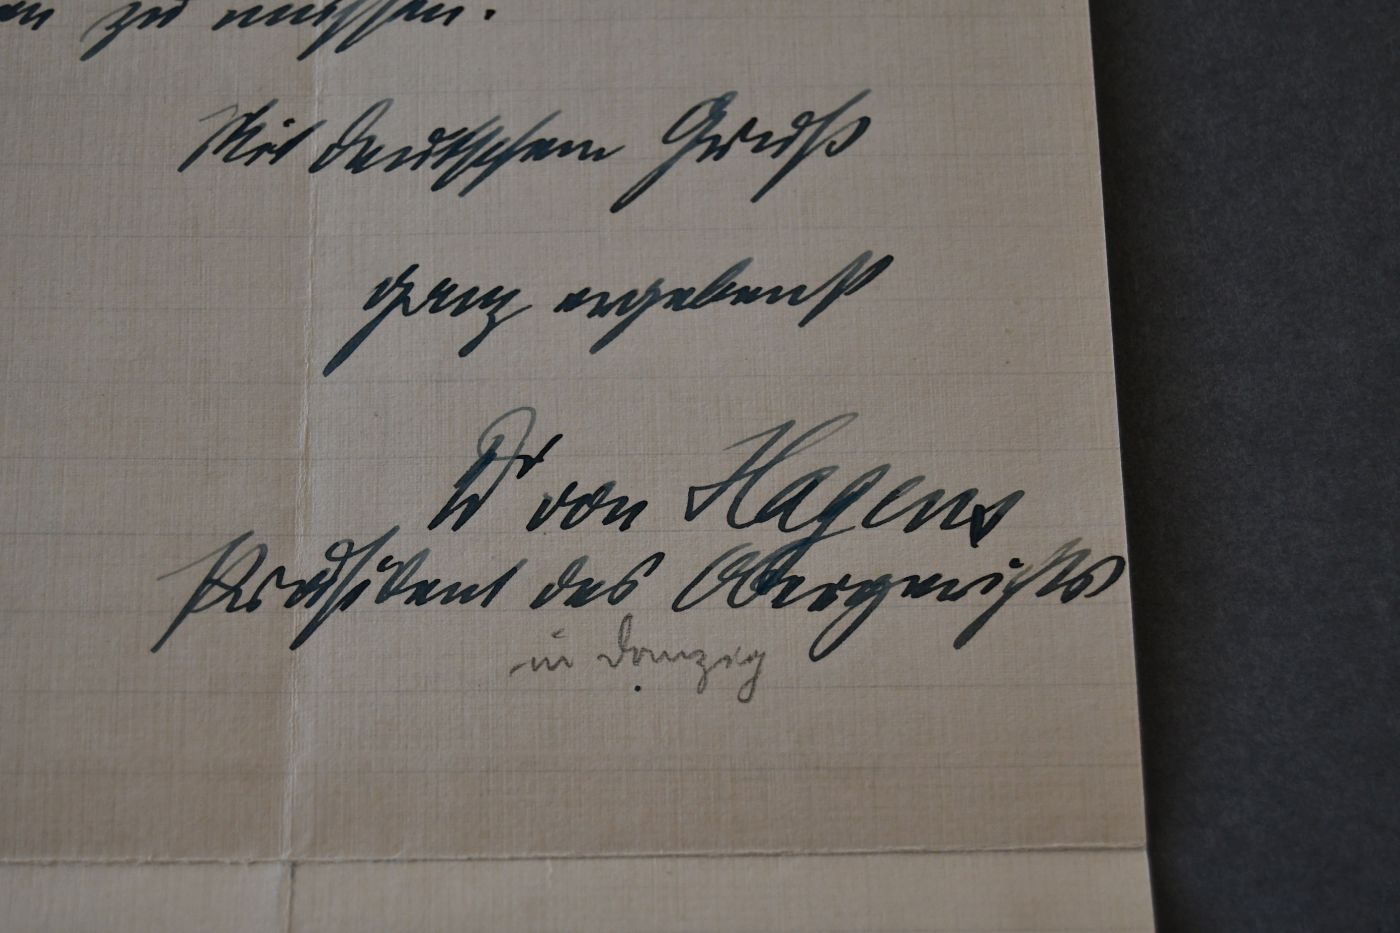 zu müssen.
Mit deutschem Gruß
ganz ergebenst
Dr von Hagens
Präsident des Obergerichts
in Danzig